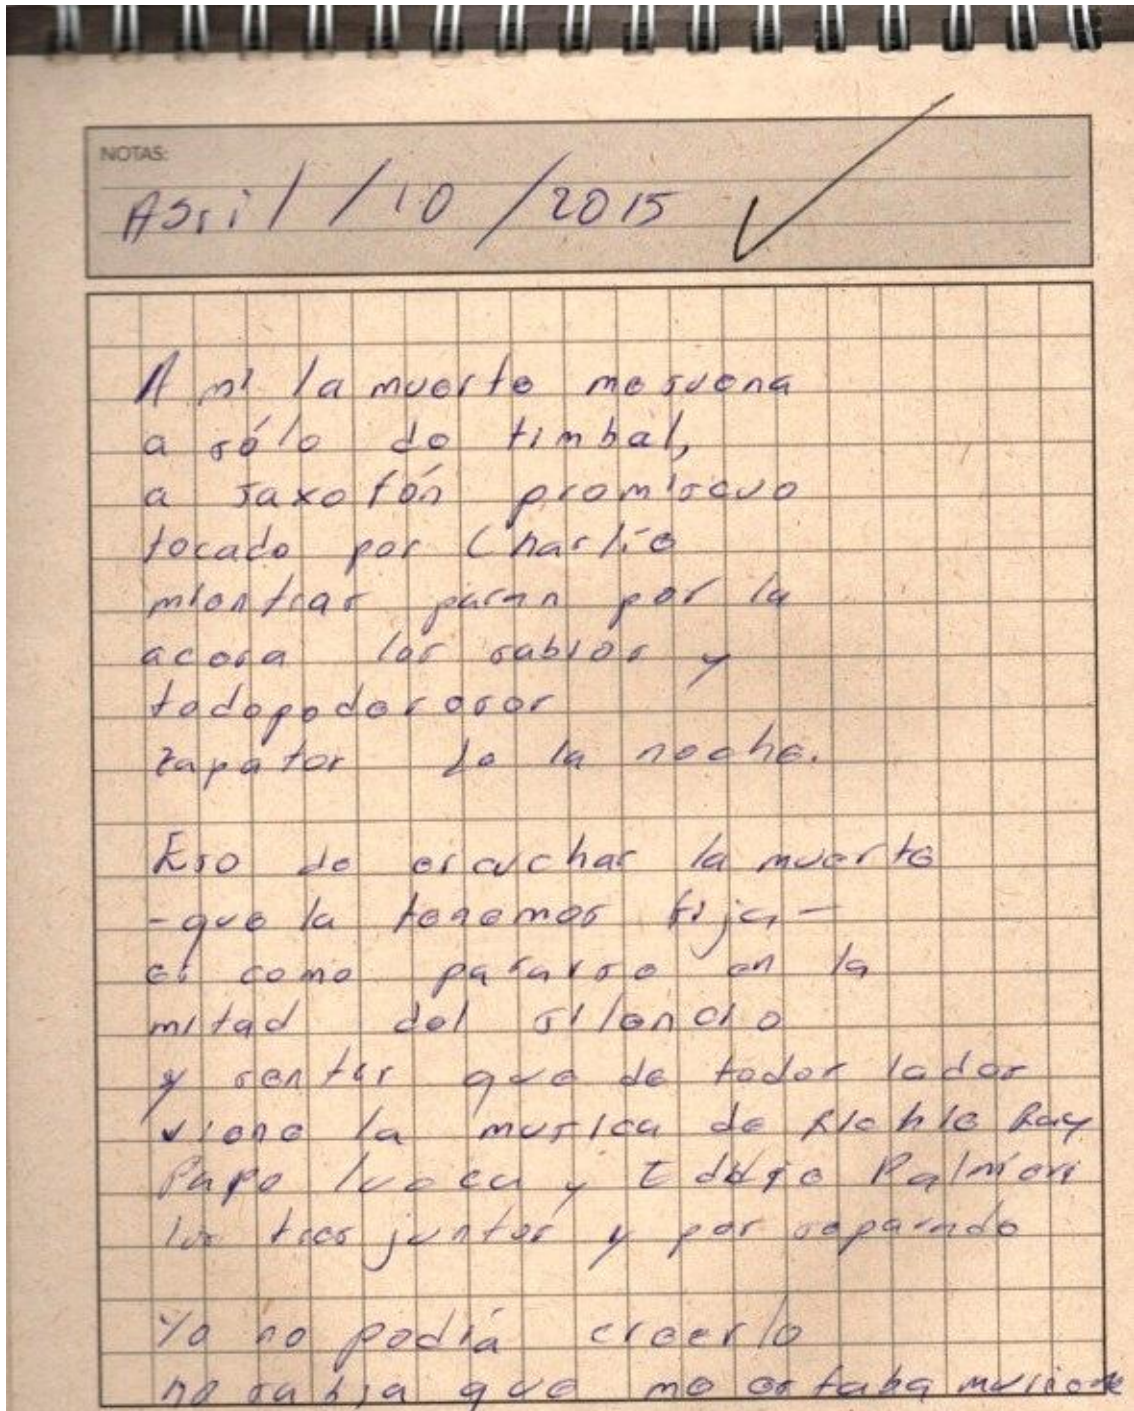 NOTAS:
Abril / 10 / 2015
A mí la muerte me suena
a sólo de timbal,
a saxofón promíscuo
tocado por Charlie
mientras pasan por la
acera los sabios y
todopoderosos
zapatos de la noche.
Eso de escuchar la muerte
-que la tenemos fija-
es como pararse en la
mitad del silencio
y sentir que de todos lados
viene la musica de Richie Ray
Papo Lucca y Eddie Palmieri
los tres juntos y por separado
Yo no podía creerlo
no sabia que me estaba